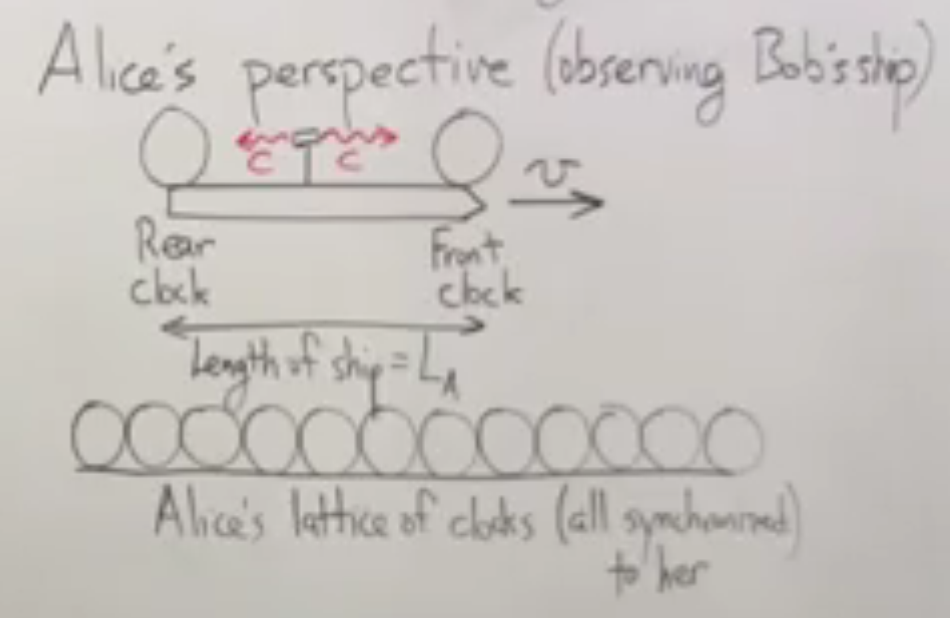 Alice's perspective (observing Bob's ship)
c c
v
Rear Front
clock clock
Length of ship = L_A
Alice's lattice of clocks (all synchronized)
to her